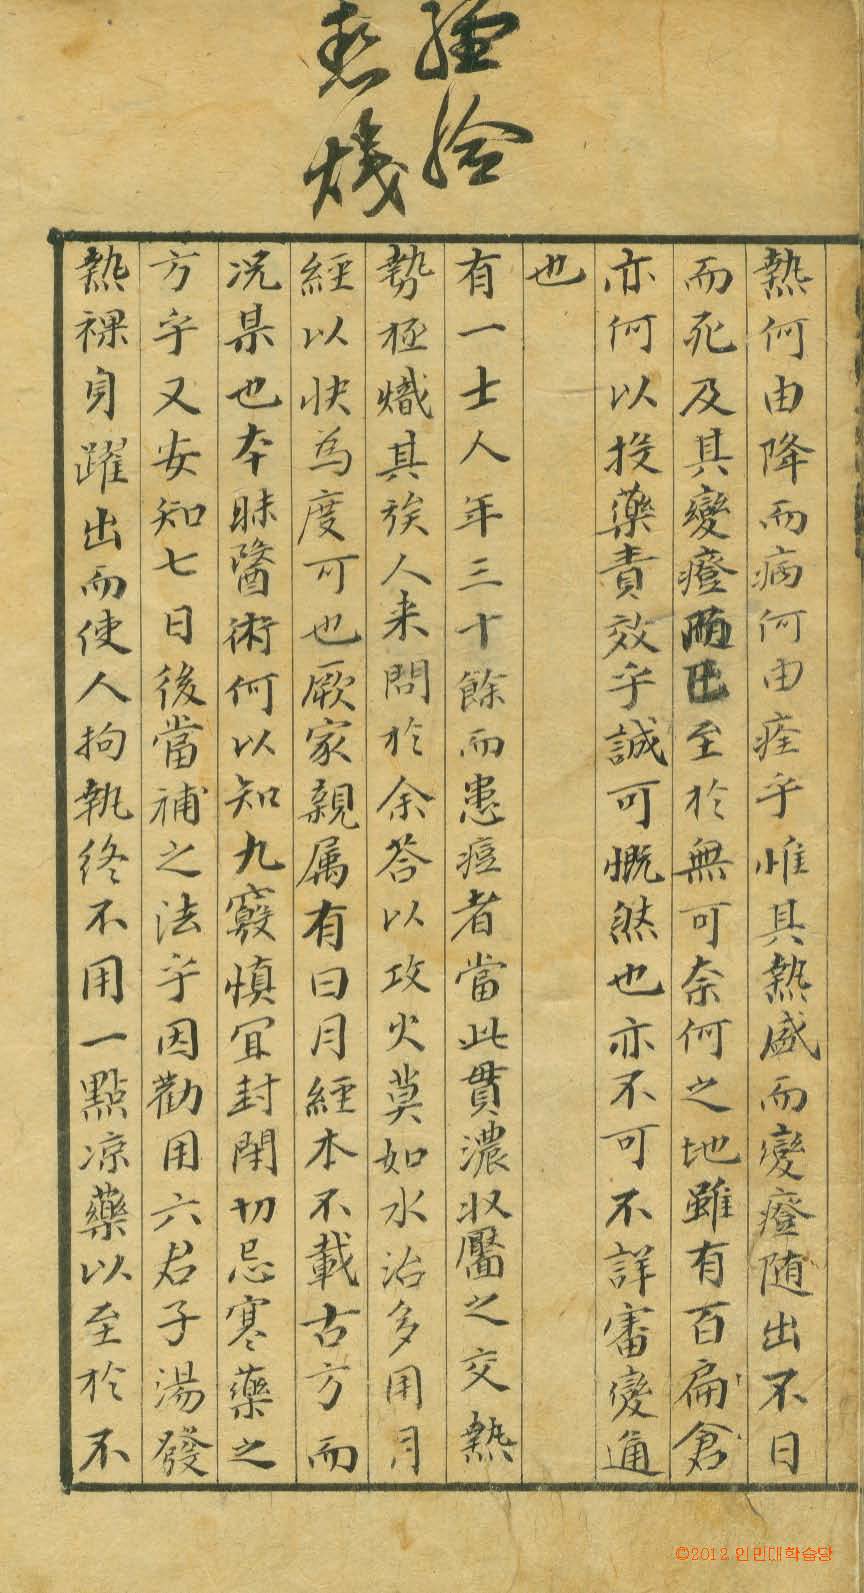 經驗
熱熾
熱何由降而病何由痊乎惟其熱盛而變癍随出不日
而死及其變癍而已至於無可奈何之地雖有百扁倉
亦何以投藥責效乎誠可慨然也亦不可不詳審變通
也
有一士人年三十餘而患痘者當此貫濃收靨之交熱
勢極熾其族人来問於余答以攻火莫如水治多用月
經以快為度可也厥家親属有曰月經本不載古方而
况某也本昧醫術何以知九竅慎宜封閉切忌寒藥之
方乎又安知七日後當補之法乎因勸用六君子湯發
熱裸身躍出而使人拘執終不用一點凉藥以至於不
©2012 인민대학습당